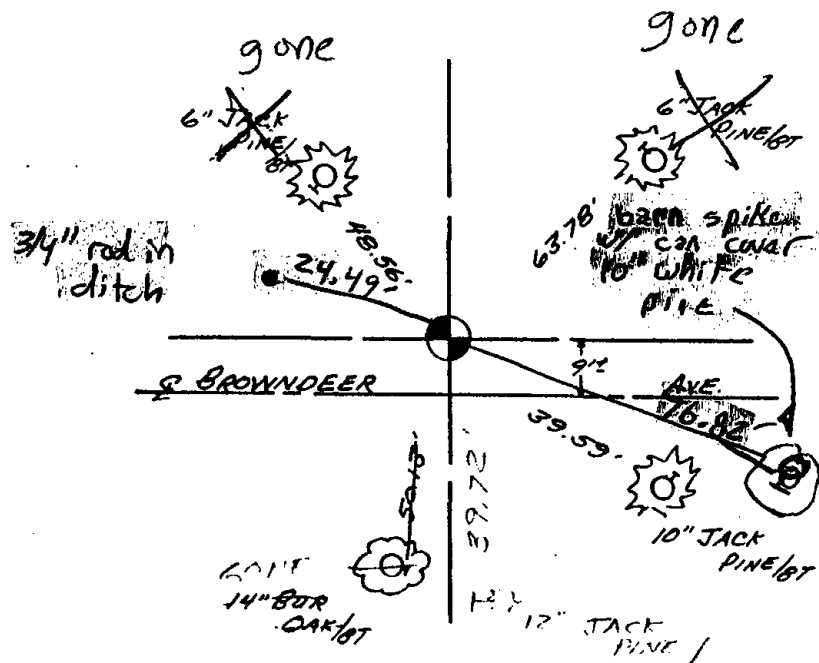 gone
gone
6" JACK
PINE/
BT
6" JACK
PINE/BT
3/4" rod in
ditch
48.56'
24.49'
63.78'
barn spike
w/ can cover
10" white
pine
9'±
℄ BROWNDEER AVE.
76.82
39.59'
39.72'
10" JACK
PINE/BT
14" BUR
OAK/BT
12" JACK
PINE/